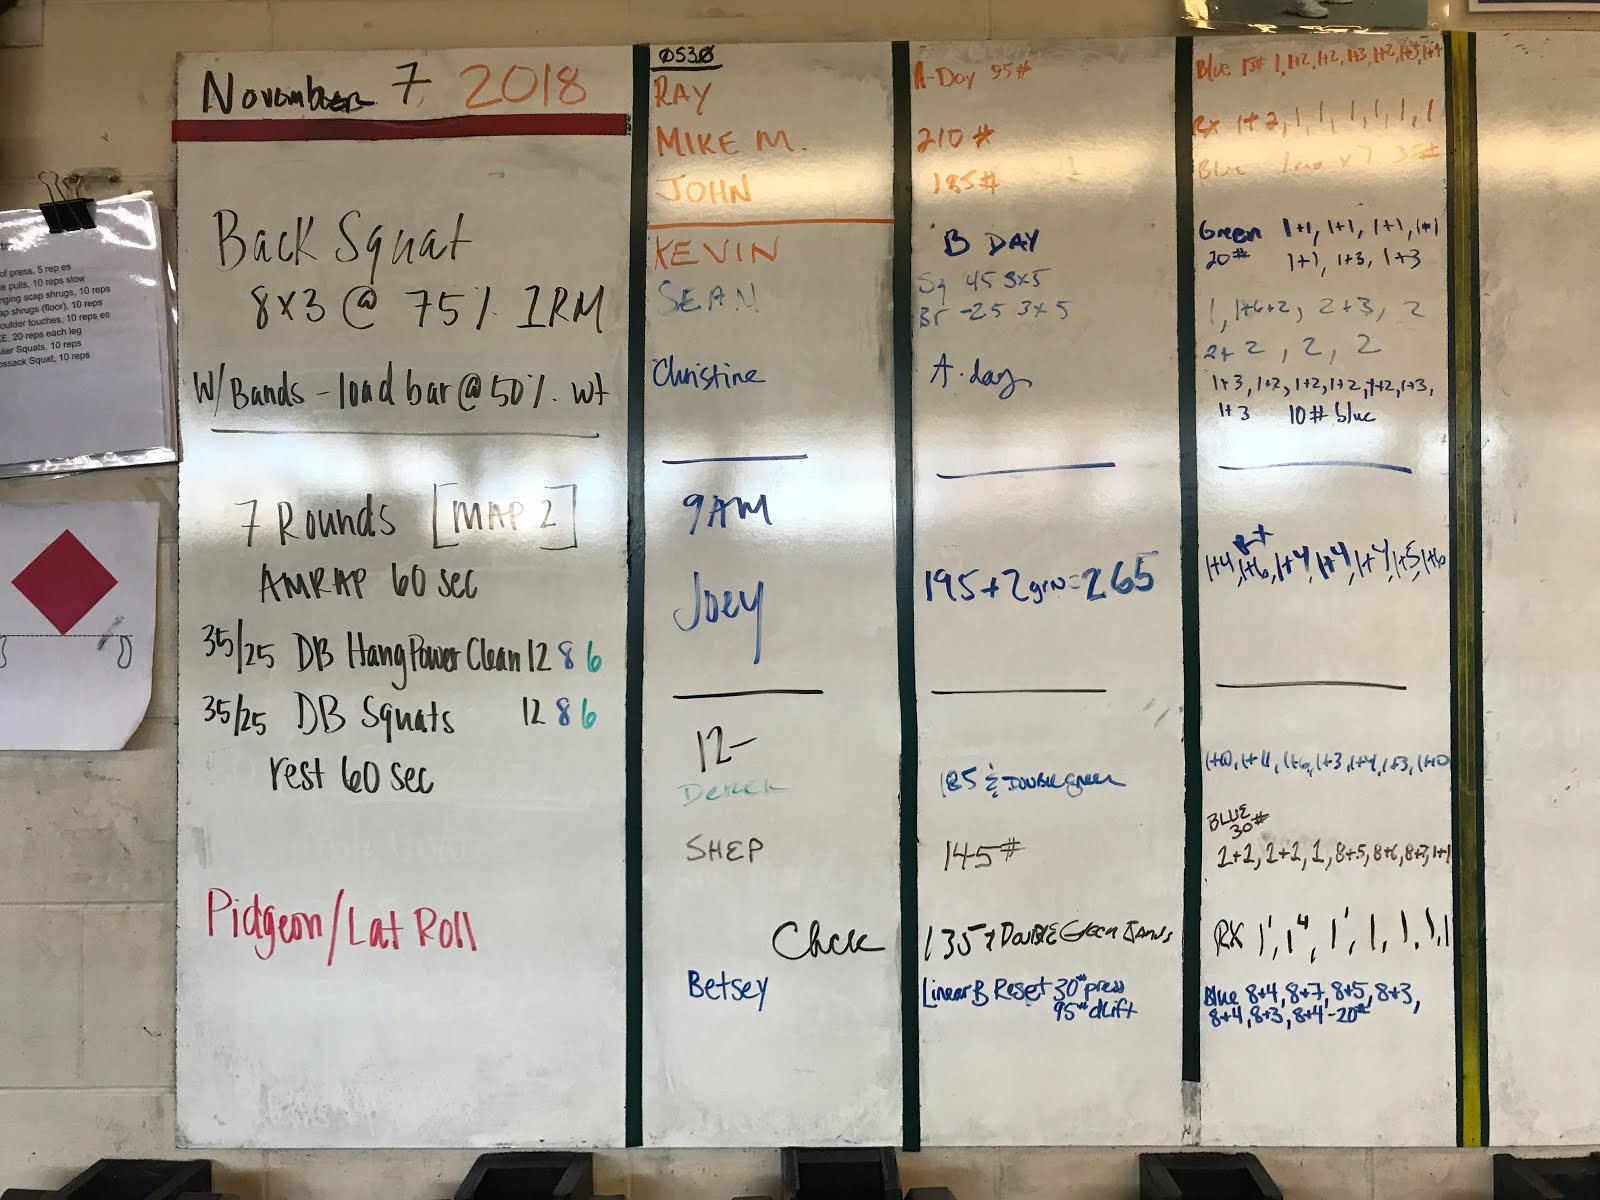 November 7 2018
Back Squat
8x3 @ 75% 1RM
W/Bands - load bar @ 50% wt
7 Rounds [MAP 2]
AMRAP 60 sec
35/25 DB Hang Power Clean 12 8 6
35/25 DB Squats 12 8 6
rest 60 sec
Pidgeon/Lat Roll
of press, 5 rep es
e pulls, 10 reps slow
nging scap shrugs, 10 reps
ap shrugs (floor), 10 reps
oulder touches, 10 reps es
E, 20 reps each leg
uier Squats, 10 reps
ossack Squat, 10 reps
0530
RAY
MIKE M.
JOHN
KEVIN
SEAN
Christine
9AM
Joey
12-
Derek
SHEP
Betsey
A-Day 95#
210 #
185#
B DAY
Sq 45 3x5
Br -25 3x5
A-day
195+2grn=265
185 & Double green
145#
135 + Double Green
Linear B Reset 30# press
95# dlift
Blue 15# 1, 1+2, 1+2, 1+3, 1+2, 1+3, 1+4
RX 1+2, 1, 1, 1, 1, 1, 1
Blue x7 35#
Green 1+1, 1+1, 1+1, 1+1
20# 1+1, 1+3, 1+3
1, 1+6+2, 2+3, 2
2+2, 2, 2
1+3, 1+2, 1+2, 1+2, 1+2, 1+3,
1+3 10# blue
1+4, 1+6, 1+4, 1+4, 1+4, 1+5, 1+6
BLUE
30#
1+2, 1+2, 1, 8+5, 8+6, 8+7, 1+1
RX 1, 1, 1, 1, 1, 1, 1
Blue 8+4, 8+7, 8+5, 8+3,
8+4, 8+3, 8+4 - 20#